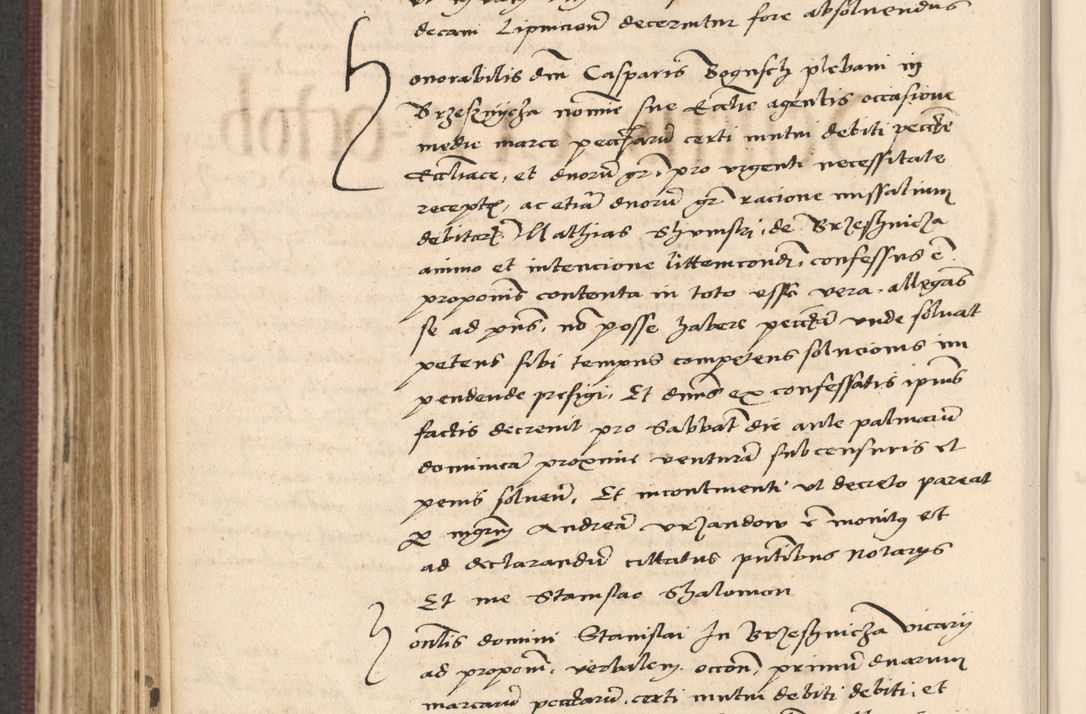 decani Lipnicen decernitur fore absolvendus
Honorabilis dni Casparis Bognsch plebani in
Brzesznycza nomine sue Ecclie agentis occasione
medie marce peccuiaru certi mutui debiti peccie
Eccliace, et duoru gr, pro urgenti necessitate
recepte, ac etia duoru gr racione missalium
debitar. Mathias Shumski, de Brzeshnicza
animo et intencione littemcond, confessus e
proponis contenta in toto esse vera, allegans
se ad pns, no posse habere peccia unde solvat
petens sibi tempus competens solucionis im
pendende prefigi, Et dnus ex confessatis ipius
factis decrevit pro Sabbat die ante palmaru
dominica proxime ventura sub censuris et
penis solven, Et incontinenti ut decreto pareat
p mgrm Andrea Urzandow e monitus et
ad declarandu cittatus pntibus notarys
Et me Stanislao Shalomon
Honlis domini Stanislai In Brzeshnicza vicarij
ad proponi, verbalem occon, primu duarum
marcaru peccaru, certi mutui debiti debiti, et